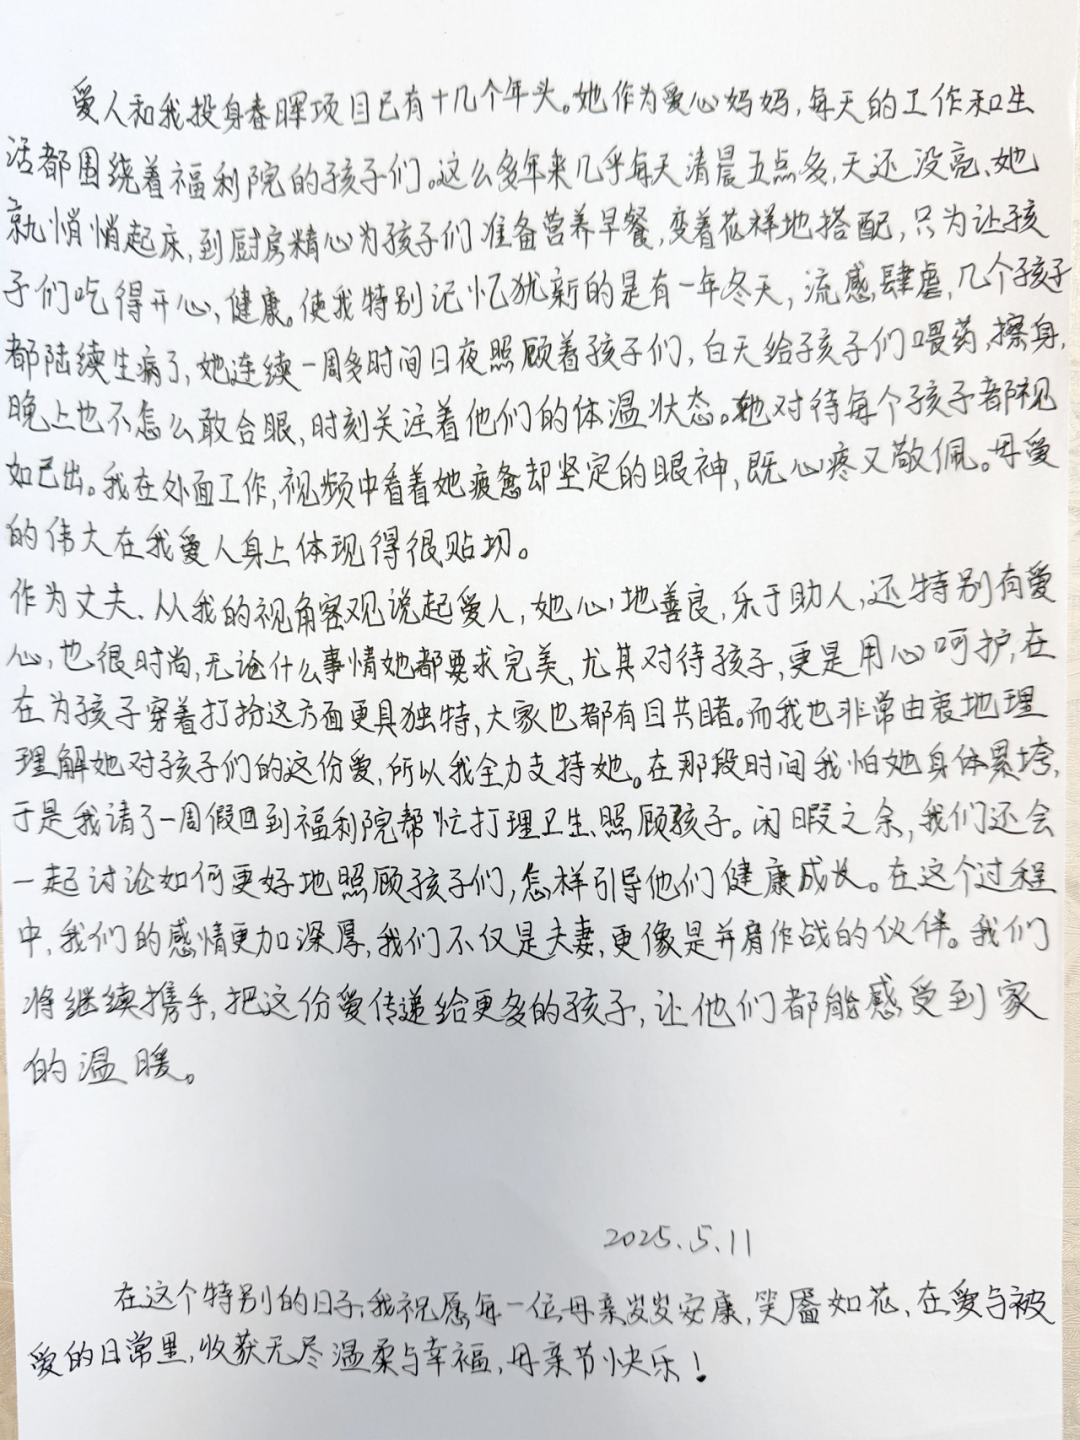 爱人和我投身春晖项目已有十几个年头。她作为爱心妈妈，每天的工作和生
活都围绕着福利院的孩子们。这么多年来几乎每天清晨五点多，天还没亮、她
就悄悄起床，到厨房精心为孩子们准备营养早餐，变着花样地搭配，只为让孩
子们吃得开心，健康。使我特别记忆犹新的是有一年冬天，流感肆虐，几个孩子
都陆续生病了，她连续一周多时间日夜照顾着孩子们，白天给孩子们喂药，擦身，
晚上也不怎么敢合眼，时刻关注着他们的体温状态。她对待每个孩子都视
如己出。我在外面工作，视频中看着她疲惫却坚定的眼神，既心疼又敬佩。母爱
的伟大在我爱人身上体现得很贴切。
作为丈夫、从我的视角客观说起爱人，她心地善良，乐于助人，还特别有爱
心，也很时尚，无论什么事情她都要求完美，尤其对待孩子，更是用心呵护，在
在为孩子穿着打扮这方面更具独特，大家也都有目共睹。而我也非常由衷地理
理解她对孩子们的这份爱，所以我全力支持她。在那段时间我怕她身体累垮，
于是我请了一周假回到福利院帮忙打理卫生、照顾孩子。闲暇之余，我们还会
一起讨论如何更好地照顾孩子们，怎样引导他们健康成长。在这个过程
中，我们的感情更加深厚，我们不仅是夫妻，更像是并肩作战的伙伴。我们
将继续携手，把这份爱传递给更多的孩子，让他们都能感受到家
的温暖。
2025.5.11
在这个特别的日子，我祝愿每一位母亲岁岁安康，笑靥如花，在爱与被
爱的日常里，收获无尽温柔与幸福，母亲节快乐！